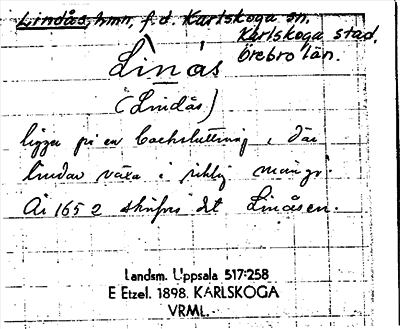 Lindås, hmn, f.d. Karlskoga sn.
Karlskoga stad.
Örebro län.
Linås
(Lindås)
ligger på en backsluttning, där
lindar växa i riklig mängd.
År 1652 skrifves det Linåsen.
Landsm. Uppsala 517:258
E Etzel. 1898. KARLSKOGA
VRML.